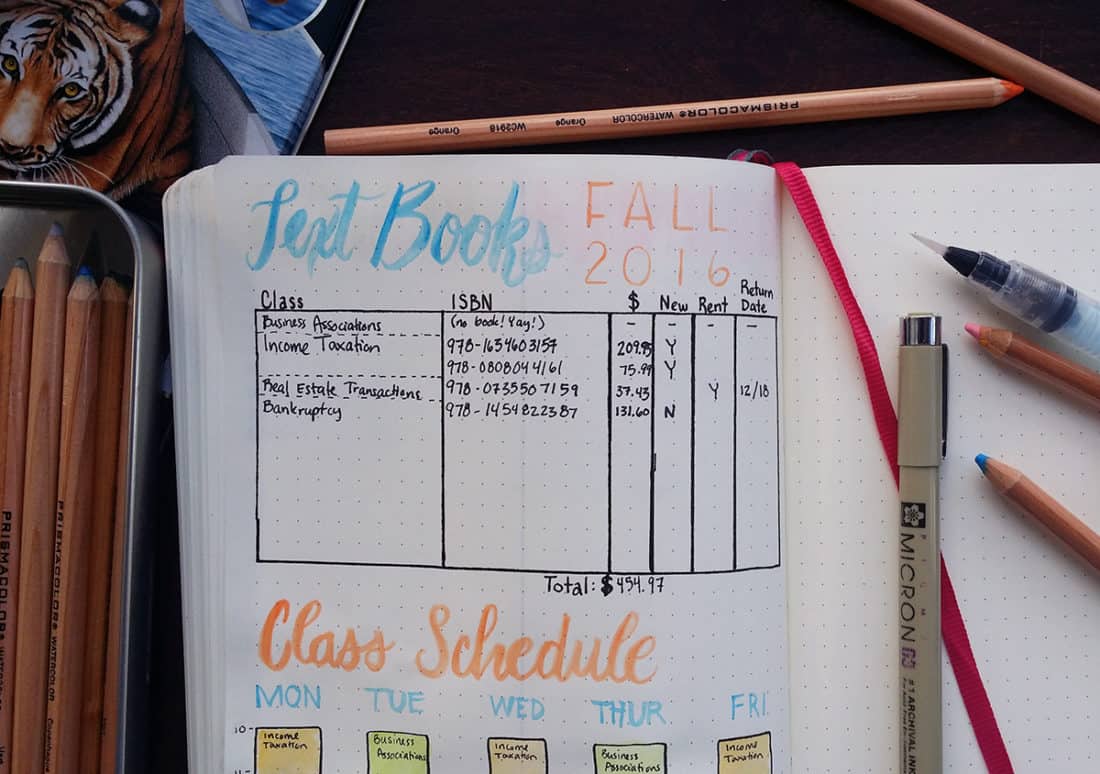 PRISMACOLOR® WATERCOLOR Orange WC2918 Orange
Text Books FALL
2016
Class ISBN $ New Rent Return Date
Business Associations (no book! Yay!) - - - -
Income Taxation 978-1634603157 209.95 Y
978-0808044161 75.99 Y
Real Estate Transactions 978-0735507159 37.43 Y 12/18
Bankruptcy 978-1454822387 131.60 N
Total: $454.97
Class Schedule
MON TUE WED THUR FRI.
10
Income Taxation
Business Associations
Income Taxation
Business Associations
Income Taxation
11
PRISMACOLOR®
PRISMACOLOR®
PIGMA
MICRON 03
#1 ARCHIVAL INK